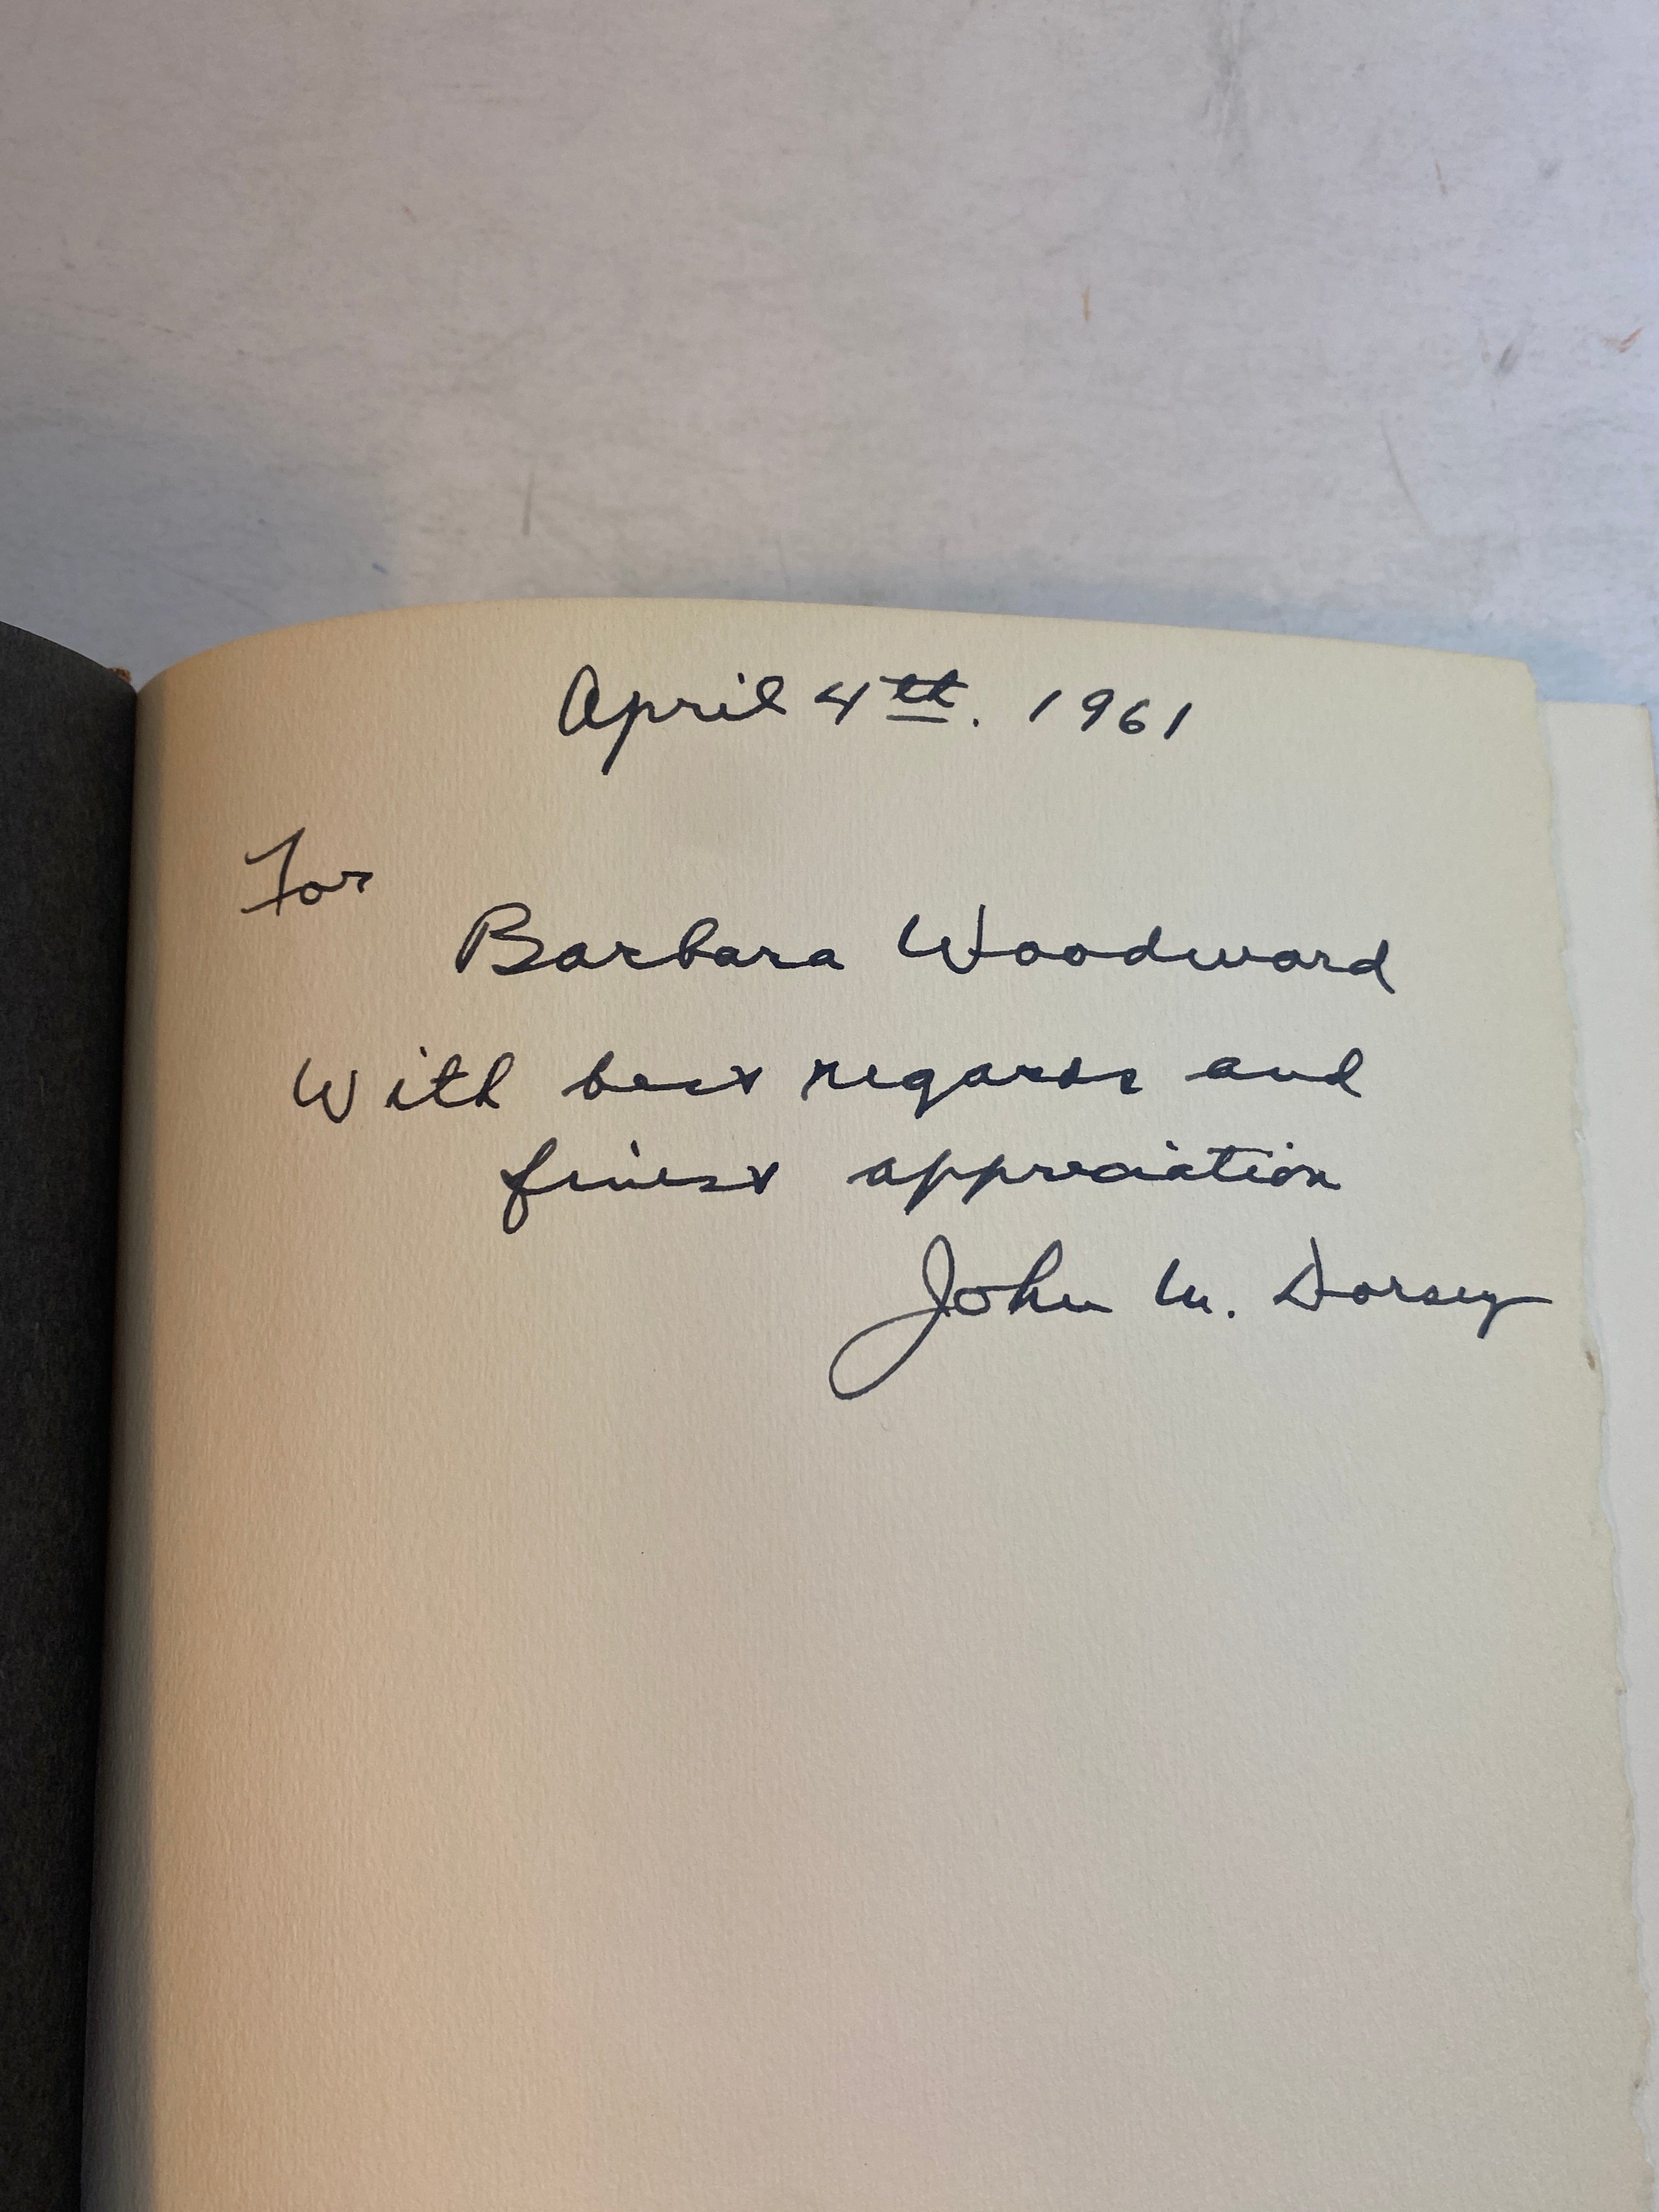 April 4th. 1961
For
Barbara Woodward
With best regards and
finest appreciation
John M. Dorsey